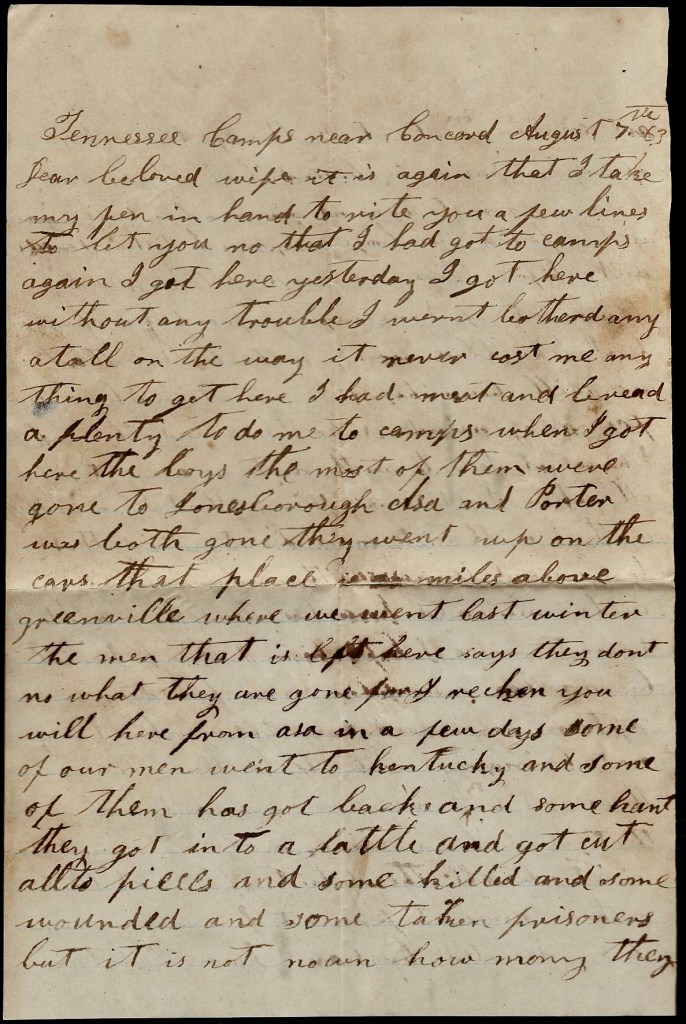 Tennessee Camps near Concord August 7th 63
Dear beloved wife it is again that I take
my pen in hand to rite you a few lines
to let you no that I had got to camps
again I got here yesterday I got here
without any trouble I wernt botherd any
atall on the way it never cost me any
thing to get here I had meat and bread
a plenty to do me to camps when I got
here the boys the most of them were
gone to Jonesborough Asa and Porter
was both gone they went up on the
cars that place miles above
greenville where we went last winter
the men that is left here says they dont
no what they are gone for I reckon you
will here from asa in a few days some
of our men went to kentucky and some
of them has got back and some hant
they got in to a battle and got cut
all to pieces and some killed and some
wounded and some taken prisoners
but it is not nown how many they